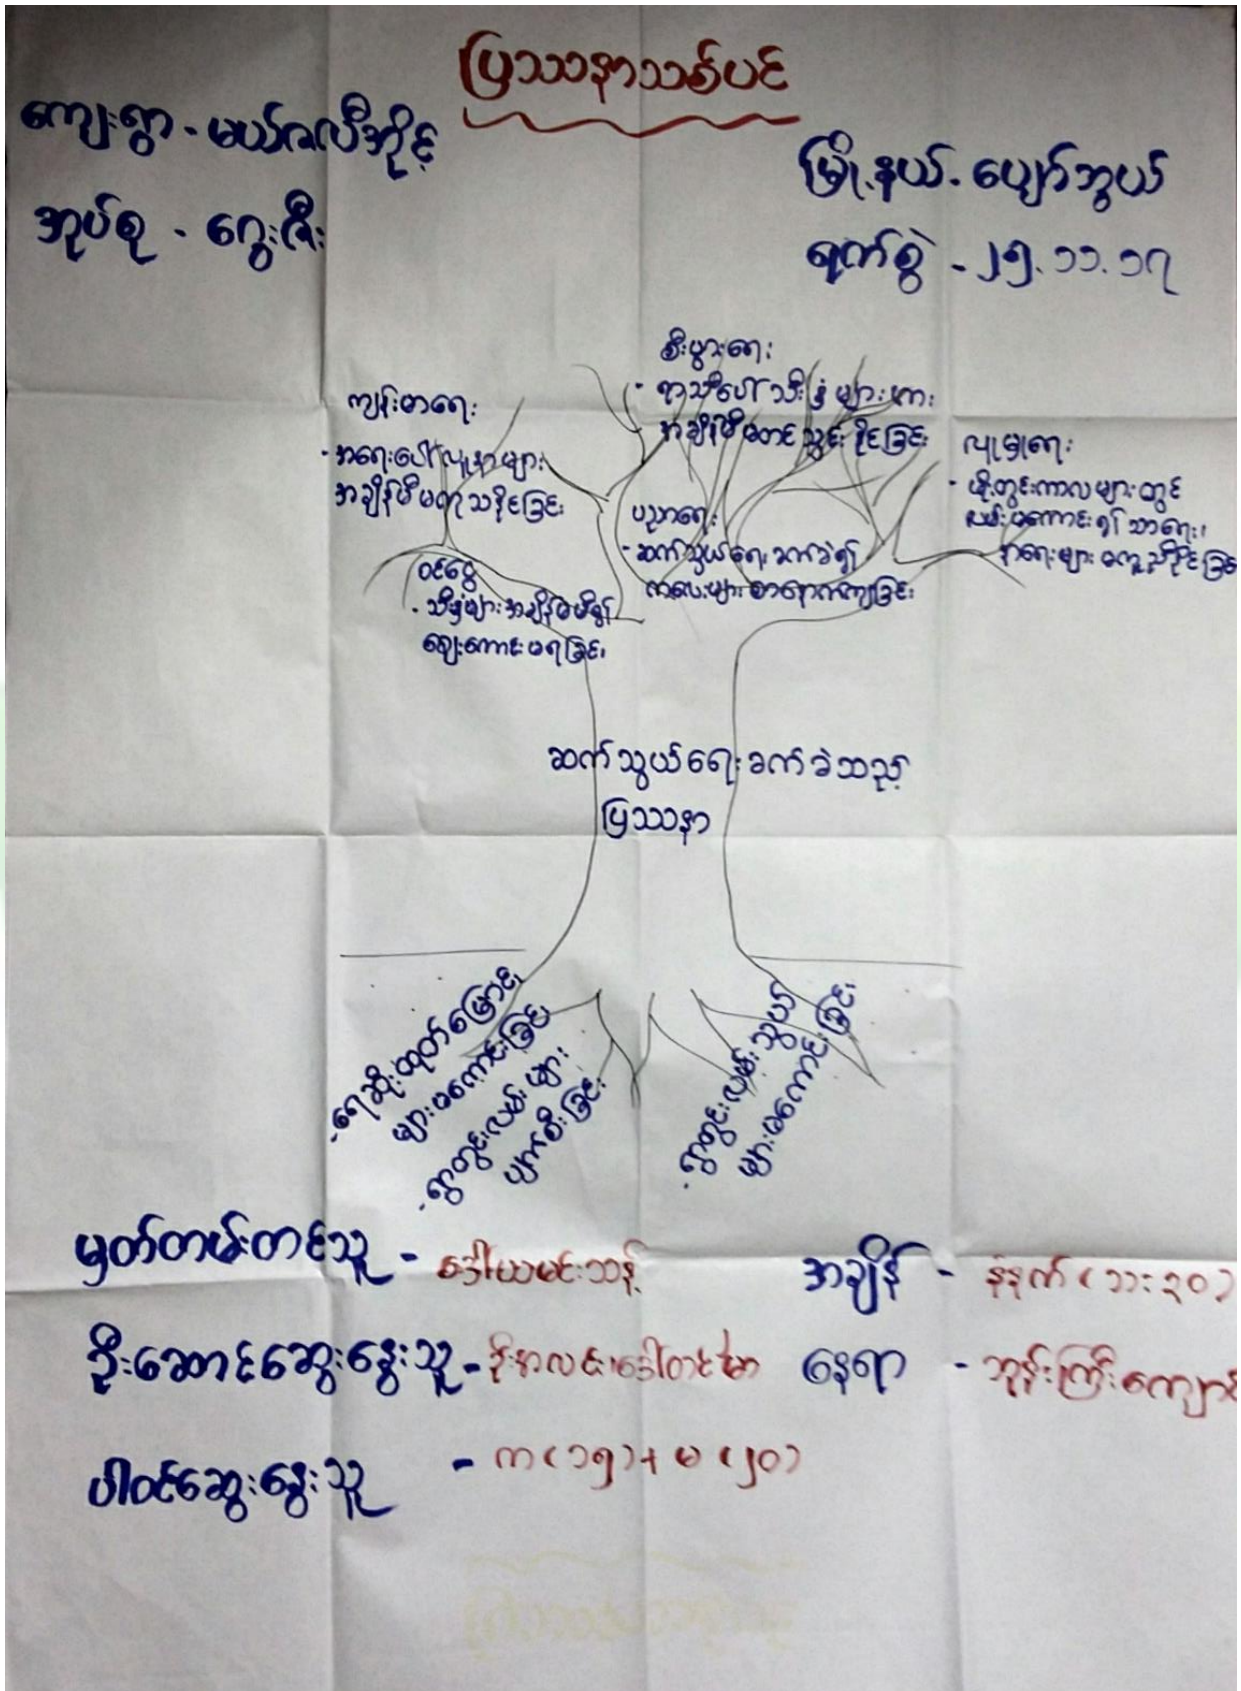 ပြဿနာသစ်ပင်
ကျေးရွာ - မယ်ဇလီအိုင့်
အုပ်စု - ဂွေးဇီး
မြို့နယ် - ပျော်ဘွယ်
ရက်စွဲ - ၂၅.၁၁.၁၇
စီးပွားရေး
· ရာသီပေါ် သီးနှံများအား
အချိန်မီမတင်သွင်းနိုင်ခြင်း
ကျန်းမာရေး
· အရေးပေါ်လူနာများ
အချိန်မီမကုသနိုင်ခြင်း
လူမှုရေး
· မိုးတွင်းကာလများတွင်
လမ်းမကောင်း၍ သာရေး၊
နာရေးများ မကူညီနိုင်ခြင်း
ပညာရေး
· ဆက်သွယ်ရေးခက်ခဲ၍
ကလေးများစာနောက်ကျခြင်း
ဝင်ငွေ
· သီးနှံများအချိန်မမီ၍
ဈေးကောင်းမရခြင်း
ဆက်သွယ်ရေးခက်ခဲသည့်
ပြဿနာ
· ရေဆိုးထုတ်မြောင်း
များမကောင်းခြင်း
· ရွာတွင်းလမ်းများ
ပျက်စီးခြင်း
· ရွာတွင်းလမ်းသွယ်
များမကောင်းခြင်း
မှတ်တမ်းတင်သူ - ဒေါ်ယမင်းသန့်
အချိန် - နံနက် (၁၁:၃၀)
ဦးဆောင်ဆွေးနွေးသူ -
နေရာ - ဘုန်းကြီးကျောင်း
ပါဝင်ဆွေးနွေးသူ - က (၁၅) + မ (၂၀)